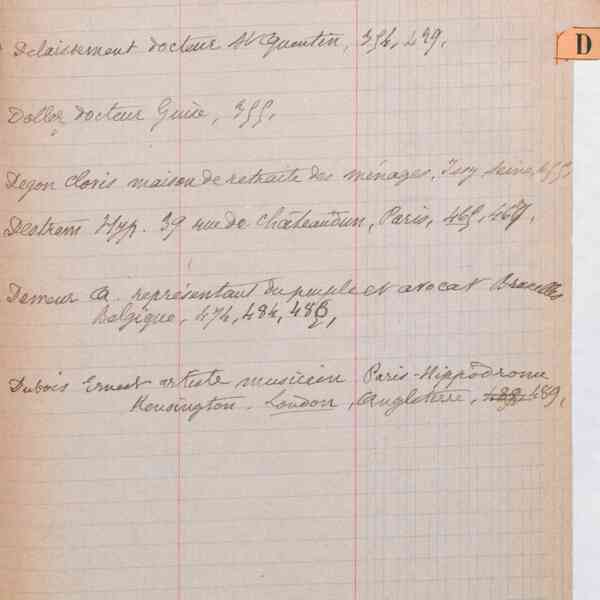 D
Delaissement docteur St Quentin, 354, 439,
Dollez docteur Guise, 355,
Degon Clovis maison de retraite des ménages, Issy, Seine, 455,
Destrem Hyp. 39 rue de Châteaudun, Paris, 465, 467,
Demeur A. représentant du peuple et avocat Bruxelles
Belgique, 474, 484, 485,
Dubois Ernest artiste musicien Paris-Hippodrome
Kensington. London, Angleterre, 489,